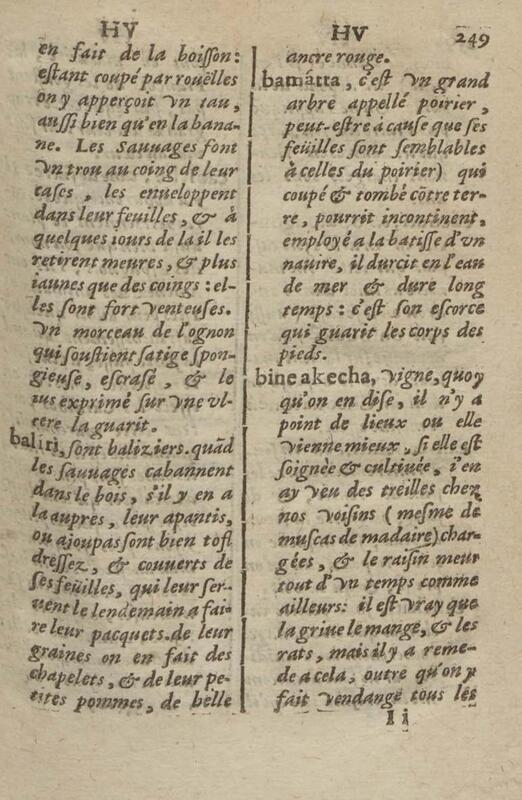 HV
HV
249
en fait de la boisson:
estant coupé par rouëlles
on y apperçoit vn tau,
aussi bien qu'en la bana-
ne. Les Sauuages font
vn trou au coing de leur
cases, les enueloppent
dans leur feuilles, & à
quelques iours de la il les
retirent meures, & plus
iaunes que des coings: el-
les sont fort venteuses.
vn morceau de l'ognon
qui soustient sa tige spon-
gieuse, escrasé, & le
ius exprimé sur vne vl-
cere la guarit.
baliri, sont baliziers. quãd
les sauuages cabannent
dans le bois, s'il y en a
la aupres, leur apantis,
ou ajoupas sont bien tost
dressez, & couuerts de
ses feüilles, qui leur ser-
uent le lendemain a fai-
re leur pacquets. de leur
graines on en fait des
chapelets, & de leur pe-
tites pommes, de belle
ancre rouge.
bamátta, c'est vn grand
arbre appellé poirier,
peut-estre à cause que ses
feüilles sont semblables
à celles du poirier) qui
coupé & tombé cõtre ter-
re, pourrit incontinent,
employé a la batisse d'vn
nauire, il durcit en l'eau
de mer & dure long
temps: c'est son escorce
qui guarit les corps des
pieds.
bine akecha, vigne, quoy
qu'on en dise, il n'y a
point de lieux ou elle
vienne mieux, si elle est
soignée & cultiuée, i'en
ay veu des treilles chez
nos voisins (mesme de
muscas de madaire) char-
gées, & le raisin meur
tout d'vn temps comme
ailleurs: il est vray que
la griue le mange, & les
rats, mais il y a reme-
de a cela, outre qu'on y
fait vendange tous les
I i